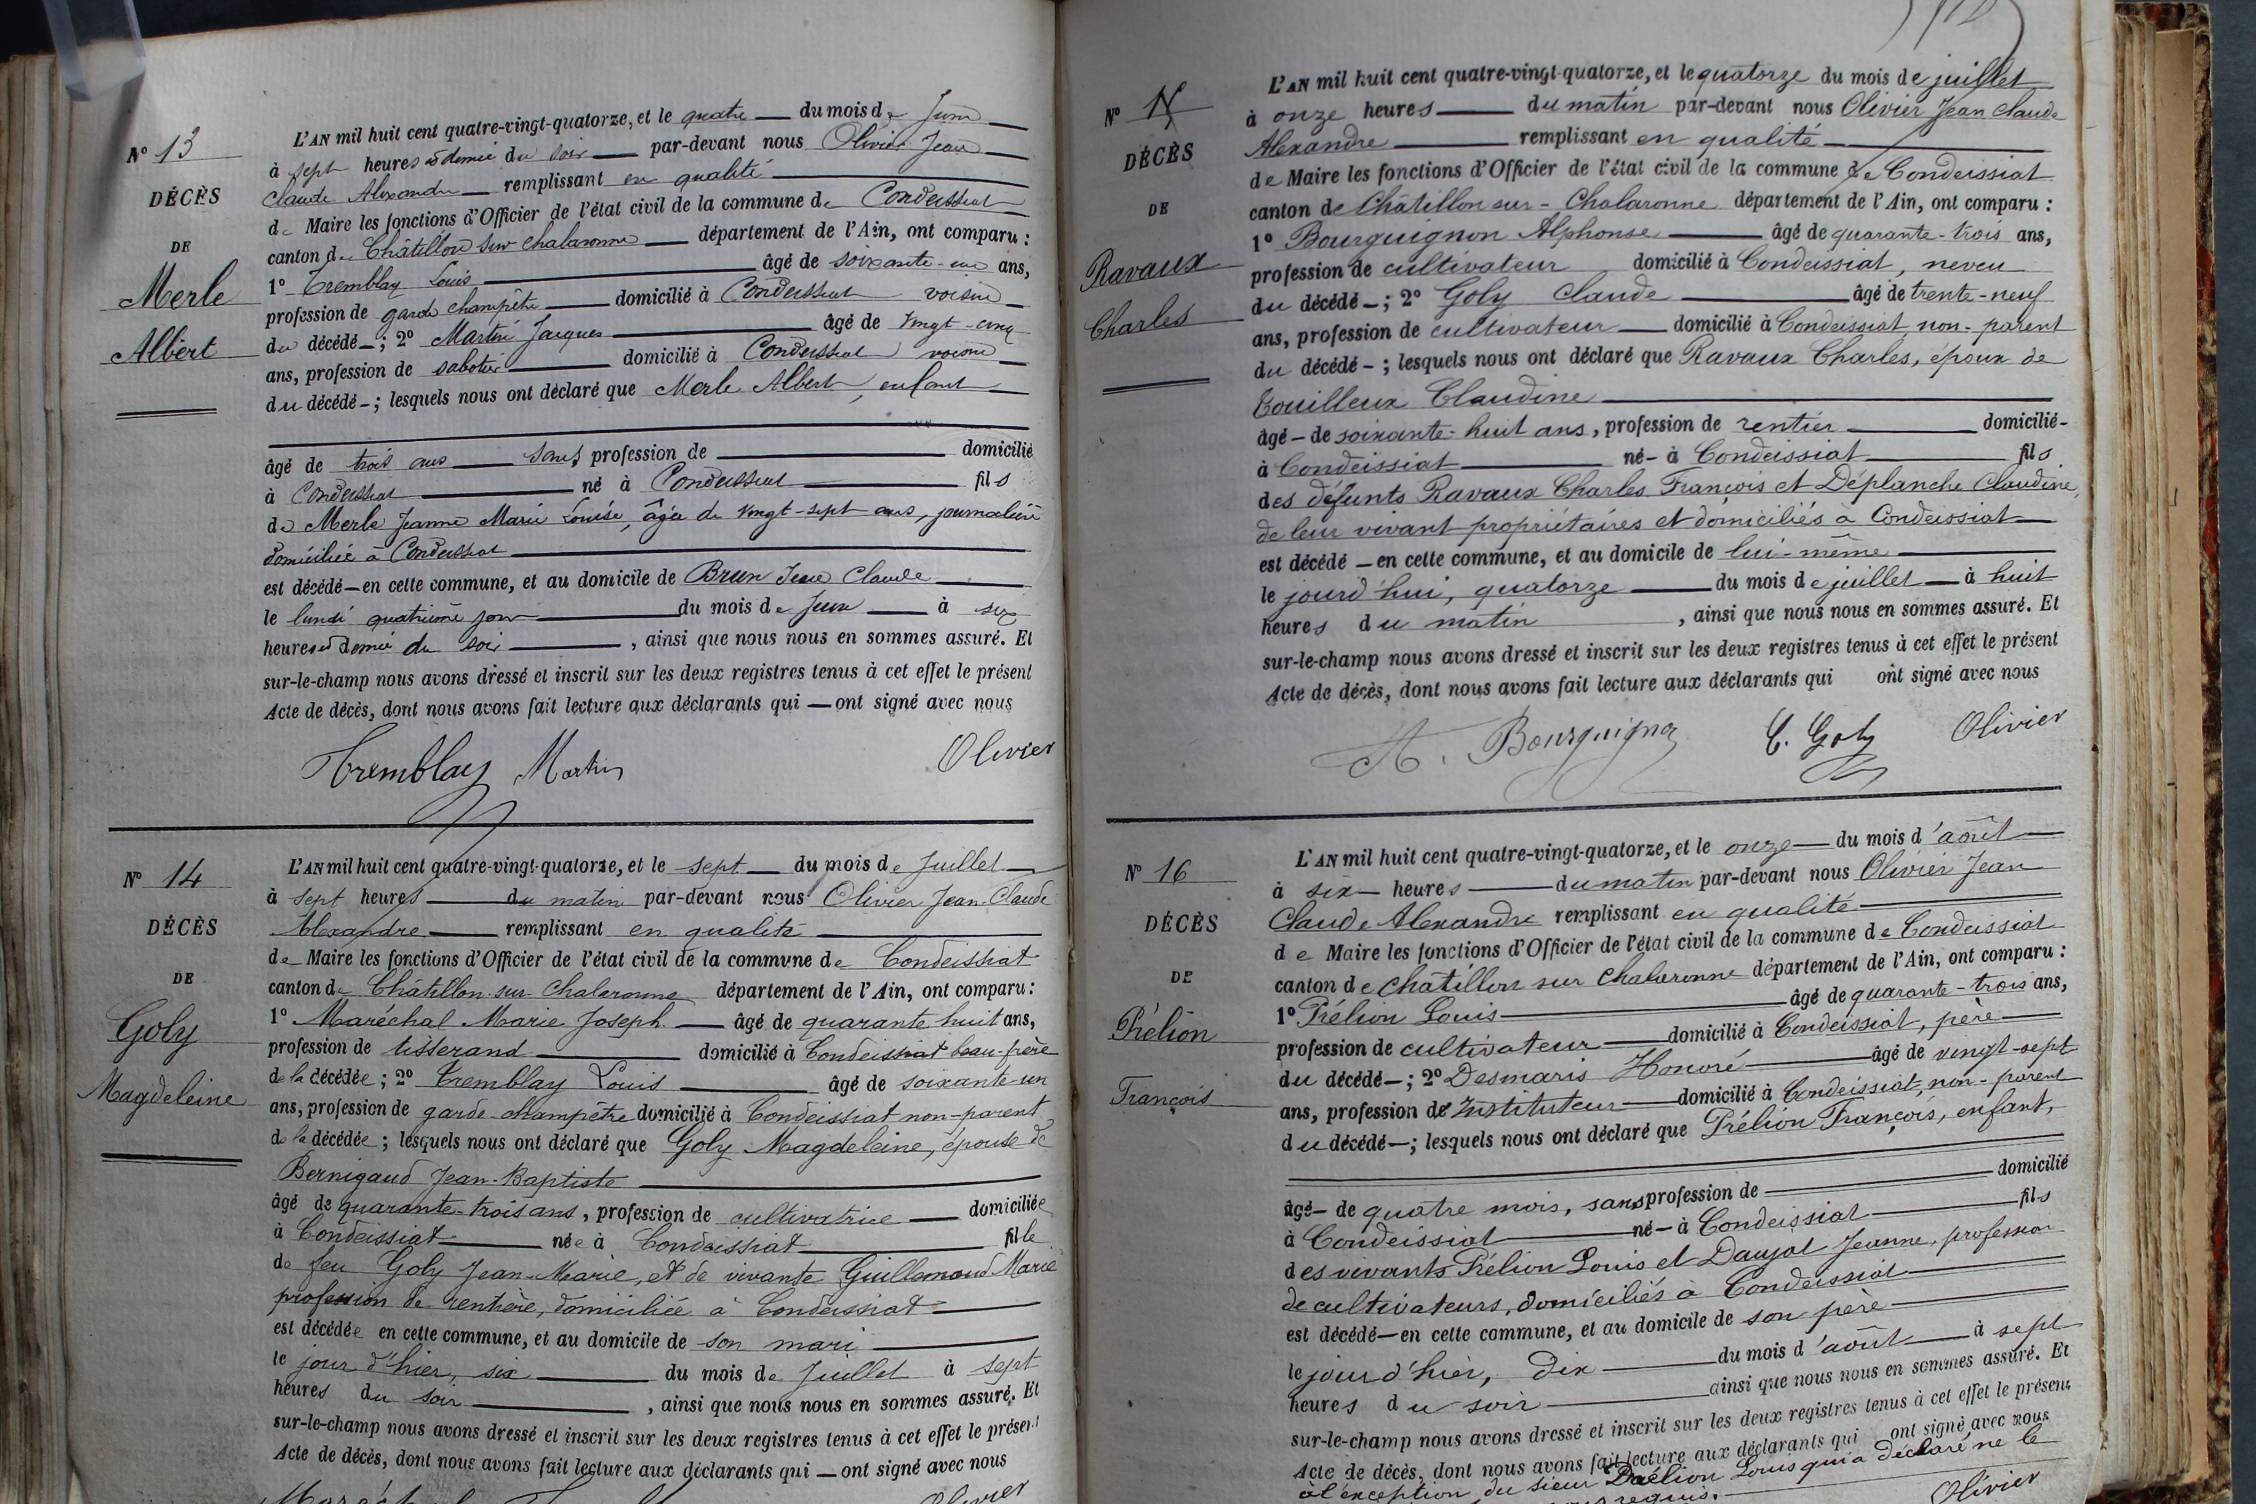 Nº 13
DÉCÈS
DE
Merle
Albert
L'AN mil huit cent quatre-vingt-quatorze, et le quatre du mois de Juin
à sept heures et demie du soir par-devant nous Olivier Jean
Claude Alexandre remplissant en qualité
de Maire les fonctions d'Officier de l'état civil de la commune de Condeissiat
canton de Châtillon sur Chalaronne département de l'Ain, ont comparu :
1º Tremblay Louis âgé de soixante-un ans,
profession de garde champêtre domicilié à Condeissiat voisin
du décédé ; 2º Martin Jacques âgé de vingt-cinq
ans, profession de sabotier domicilié à Condeissiat voisin
du décédé ; lesquels nous ont déclaré que Merle Albert, enfant
âgé de trois ans sans profession de domicilié
à Condeissiat né à Condeissiat fils
de Merle Jeanne Marie Louise, âgée de vingt-sept ans, journalière
domiciliée à Condeissiat
est décédé en cette commune, et au domicile de Brun Jean Claude
le lundi quatrième jour du mois de Juin à six
heures et demie du soir , ainsi que nous nous en sommes assuré. Et
sur-le-champ nous avons dressé et inscrit sur les deux registres tenus à cet effet le présent
Acte de décès, dont nous avons fait lecture aux déclarants qui ont signé avec nous
Tremblay Martin Olivier
Nº 14
DÉCÈS
DE
Goly
Magdeleine
L'AN mil huit cent quatre-vingt-quatorze, et le sept du mois de Juillet
à sept heures du matin par-devant nous Olivier Jean-Claude
Alexandre remplissant en qualité
de Maire les fonctions d'Officier de l'état civil de la commune de Condeissiat
canton de Châtillon-sur-Chalaronne département de l'Ain, ont comparu :
1º Maréchal Marie Joseph âgé de quarante huit ans,
profession de tisserand domicilié à Condeissiat beau-frère
de la décédée ; 2º Tremblay Louis âgé de soixante-un
ans, profession de garde-champêtre domicilié à Condeissiat non-parent
de la décédée ; lesquels nous ont déclaré que Goly Magdeleine, épouse de
Bernigaud Jean-Baptiste
âgé de quarante-trois ans, profession de cultivatrice domiciliée
à Condeissiat née à Condeissiat fille
de feu Goly Jean-Marie, et de vivante Guillemaud Marie
profession de rentière, domiciliée à Condeissiat
est décédée en cette commune, et au domicile de son mari
le jour d'hier, six du mois de Juillet à sept
heures du soir , ainsi que nous nous en sommes assuré. Et
sur-le-champ nous avons dressé et inscrit sur les deux registres tenus à cet effet le présent
Acte de décès, dont nous avons fait lecture aux déclarants qui ont signé avec nous
Olivier
Nº 15
DÉCÈS
DE
Ravaux
Charles
L'AN mil huit cent quatre-vingt-quatorze, et le quatorze du mois de juillet
à onze heures du matin par-devant nous Olivier Jean Claude
Alexandre remplissant en qualité
de Maire les fonctions d'Officier de l'état civil de la commune de Condeissiat
canton de Châtillon-sur-Chalaronne département de l'Ain, ont comparu :
1º Bourguignon Alphonse âgé de quarante-trois ans,
profession de cultivateur domicilié à Condeissiat, neveu
du décédé ; 2º Goly Claude âgé de trente-neuf
ans, profession de cultivateur domicilié à Condeissiat non-parent
du décédé ; lesquels nous ont déclaré que Ravaux Charles, époux de
Touilleux Claudine
âgé de soixante-huit ans, profession de rentier domicilié
à Condeissiat né à Condeissiat fils
des défunts Ravaux Charles François et Déplanche Claudine,
de leur vivant propriétaires et domiciliés à Condeissiat
est décédé en cette commune, et au domicile de lui-même
le jourd'hui, quatorze du mois de juillet à huit
heures du matin , ainsi que nous nous en sommes assuré. Et
sur-le-champ nous avons dressé et inscrit sur les deux registres tenus à cet effet le présent
Acte de décès, dont nous avons fait lecture aux déclarants qui ont signé avec nous
A. Bourguignon C. Goly Olivier
Nº 16
DÉCÈS
DE
Prélion
François
L'AN mil huit cent quatre-vingt-quatorze, et le onze du mois d'août
à six heures du matin par-devant nous Olivier Jean
Claude Alexandre remplissant en qualité
de Maire les fonctions d'Officier de l'état civil de la commune de Condeissiat
canton de Châtillon sur Chalaronne département de l'Ain, ont comparu :
1º Prélion Louis âgé de quarante-trois ans,
profession de cultivateur domicilié à Condeissiat, père
du décédé ; 2º Desmaris Honoré âgé de vingt-sept
ans, profession de Instituteur domicilié à Condeissiat, non-parent
du décédé ; lesquels nous ont déclaré que Prélion François, enfant,
âgé de quatre mois, sans profession de domicilié
à Condeissiat né à Condeissiat fils
des vivants Prélion Louis et Daujat Jeanne, profession
de cultivateurs, domiciliés à Condeissiat
est décédé en cette commune, et au domicile de son père
le jour d'hier, dix du mois d'août à sept
heures du soir ainsi que nous nous en sommes assuré. Et
sur-le-champ nous avons dressé et inscrit sur les deux registres tenus à cet effet le présent
Acte de décès, dont nous avons fait lecture aux déclarants qui ont signé avec nous
à l'exception du sieur Prélion Louis qui a déclaré ne le
requis. Olivier